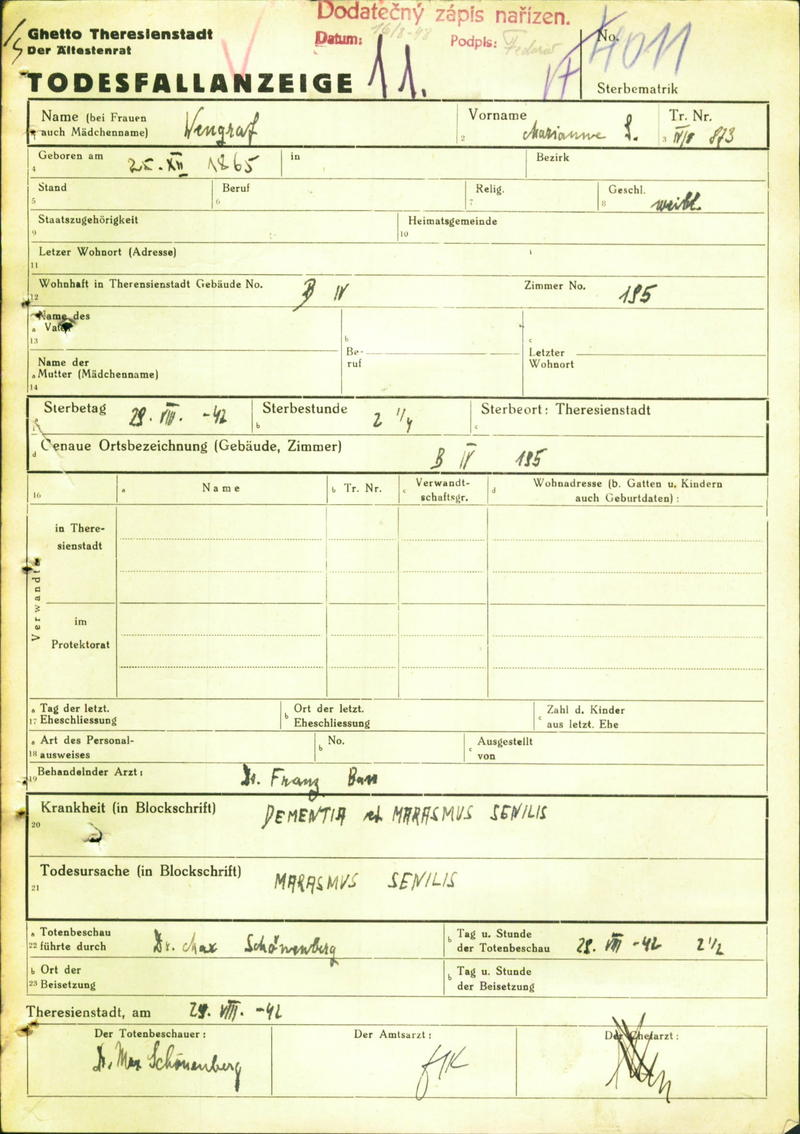 Dodatečný zápis nařízen.
Ghetto Theresienstadt
Datum: 16/8-48 Podpis:
No. 4011
Der Ältestenrat
11.
TODESFALLANZEIGE
Sterbematrik
Name (bei Frauen auch Mädchenname) Wengraf
Vorname Marianne S.
2
Tr. Nr. IV/8 873
3
Geboren am 25. XII 1865 in Bezirk
4
Stand Beruf Relig. Geschl. weibl.
5 6 7 8
Staatszugehörigkeit Heimatsgemeinde
9 10
Letzer Wohnort (Adresse)
11
Wohnhaft in Therensienstadt Gebäude No. B IV Zimmer No. 195
12
a Name des Vaters
13
b Beruf
c Letzter Wohnort
a Name der Mutter (Mädchenname)
14
Sterbetag 29. VIII. -42 Sterbestunde 2 1/4 Sterbeort: Theresienstadt
b c
d Genaue Ortsbezeichnung (Gebäude, Zimmer) B IV 195
16 a Name b Tr. Nr. c Verwandt-
schaftsgr. d Wohnadresse (b. Gatten u. Kindern
auch Geburtdaten) :
Verwandte
in There-
sienstadt
im
Protektorat
a Tag der letzt. b Ort der letzt. c Zahl d. Kinder
17 Eheschliessung Eheschliessung aus letzt. Ehe
a Art des Personal- b No. c Ausgestellt
18 ausweises von
19 Behandelnder Arzt : Dr. Franz Bass
Krankheit (in Blockschrift) DEMENTIA et MARASMUS SENILIS
20
Todesursache (in Blockschrift) MARASMUS SENILIS
21
a Totenbeschau b Tag u. Stunde
22 führte durch Dr. Max Schönenberg der Totenbeschau 29. VIII -42 2 1/2
b Ort der b Tag u. Stunde
23 Beisetzung der Beisetzung
Theresienstadt, am 29. VIII. -42
Der Totenbeschauer : Der Amtsarzt : Der Chefarzt :
Dr. Max Schönenberg